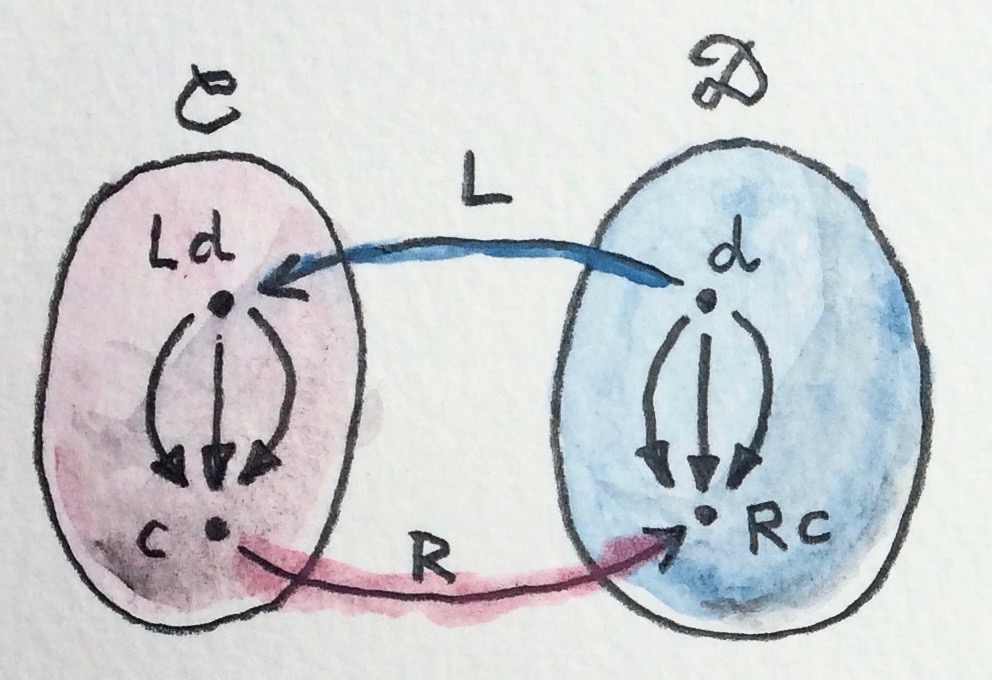 𝒞 𝒟
L
Ld d
c R Rc